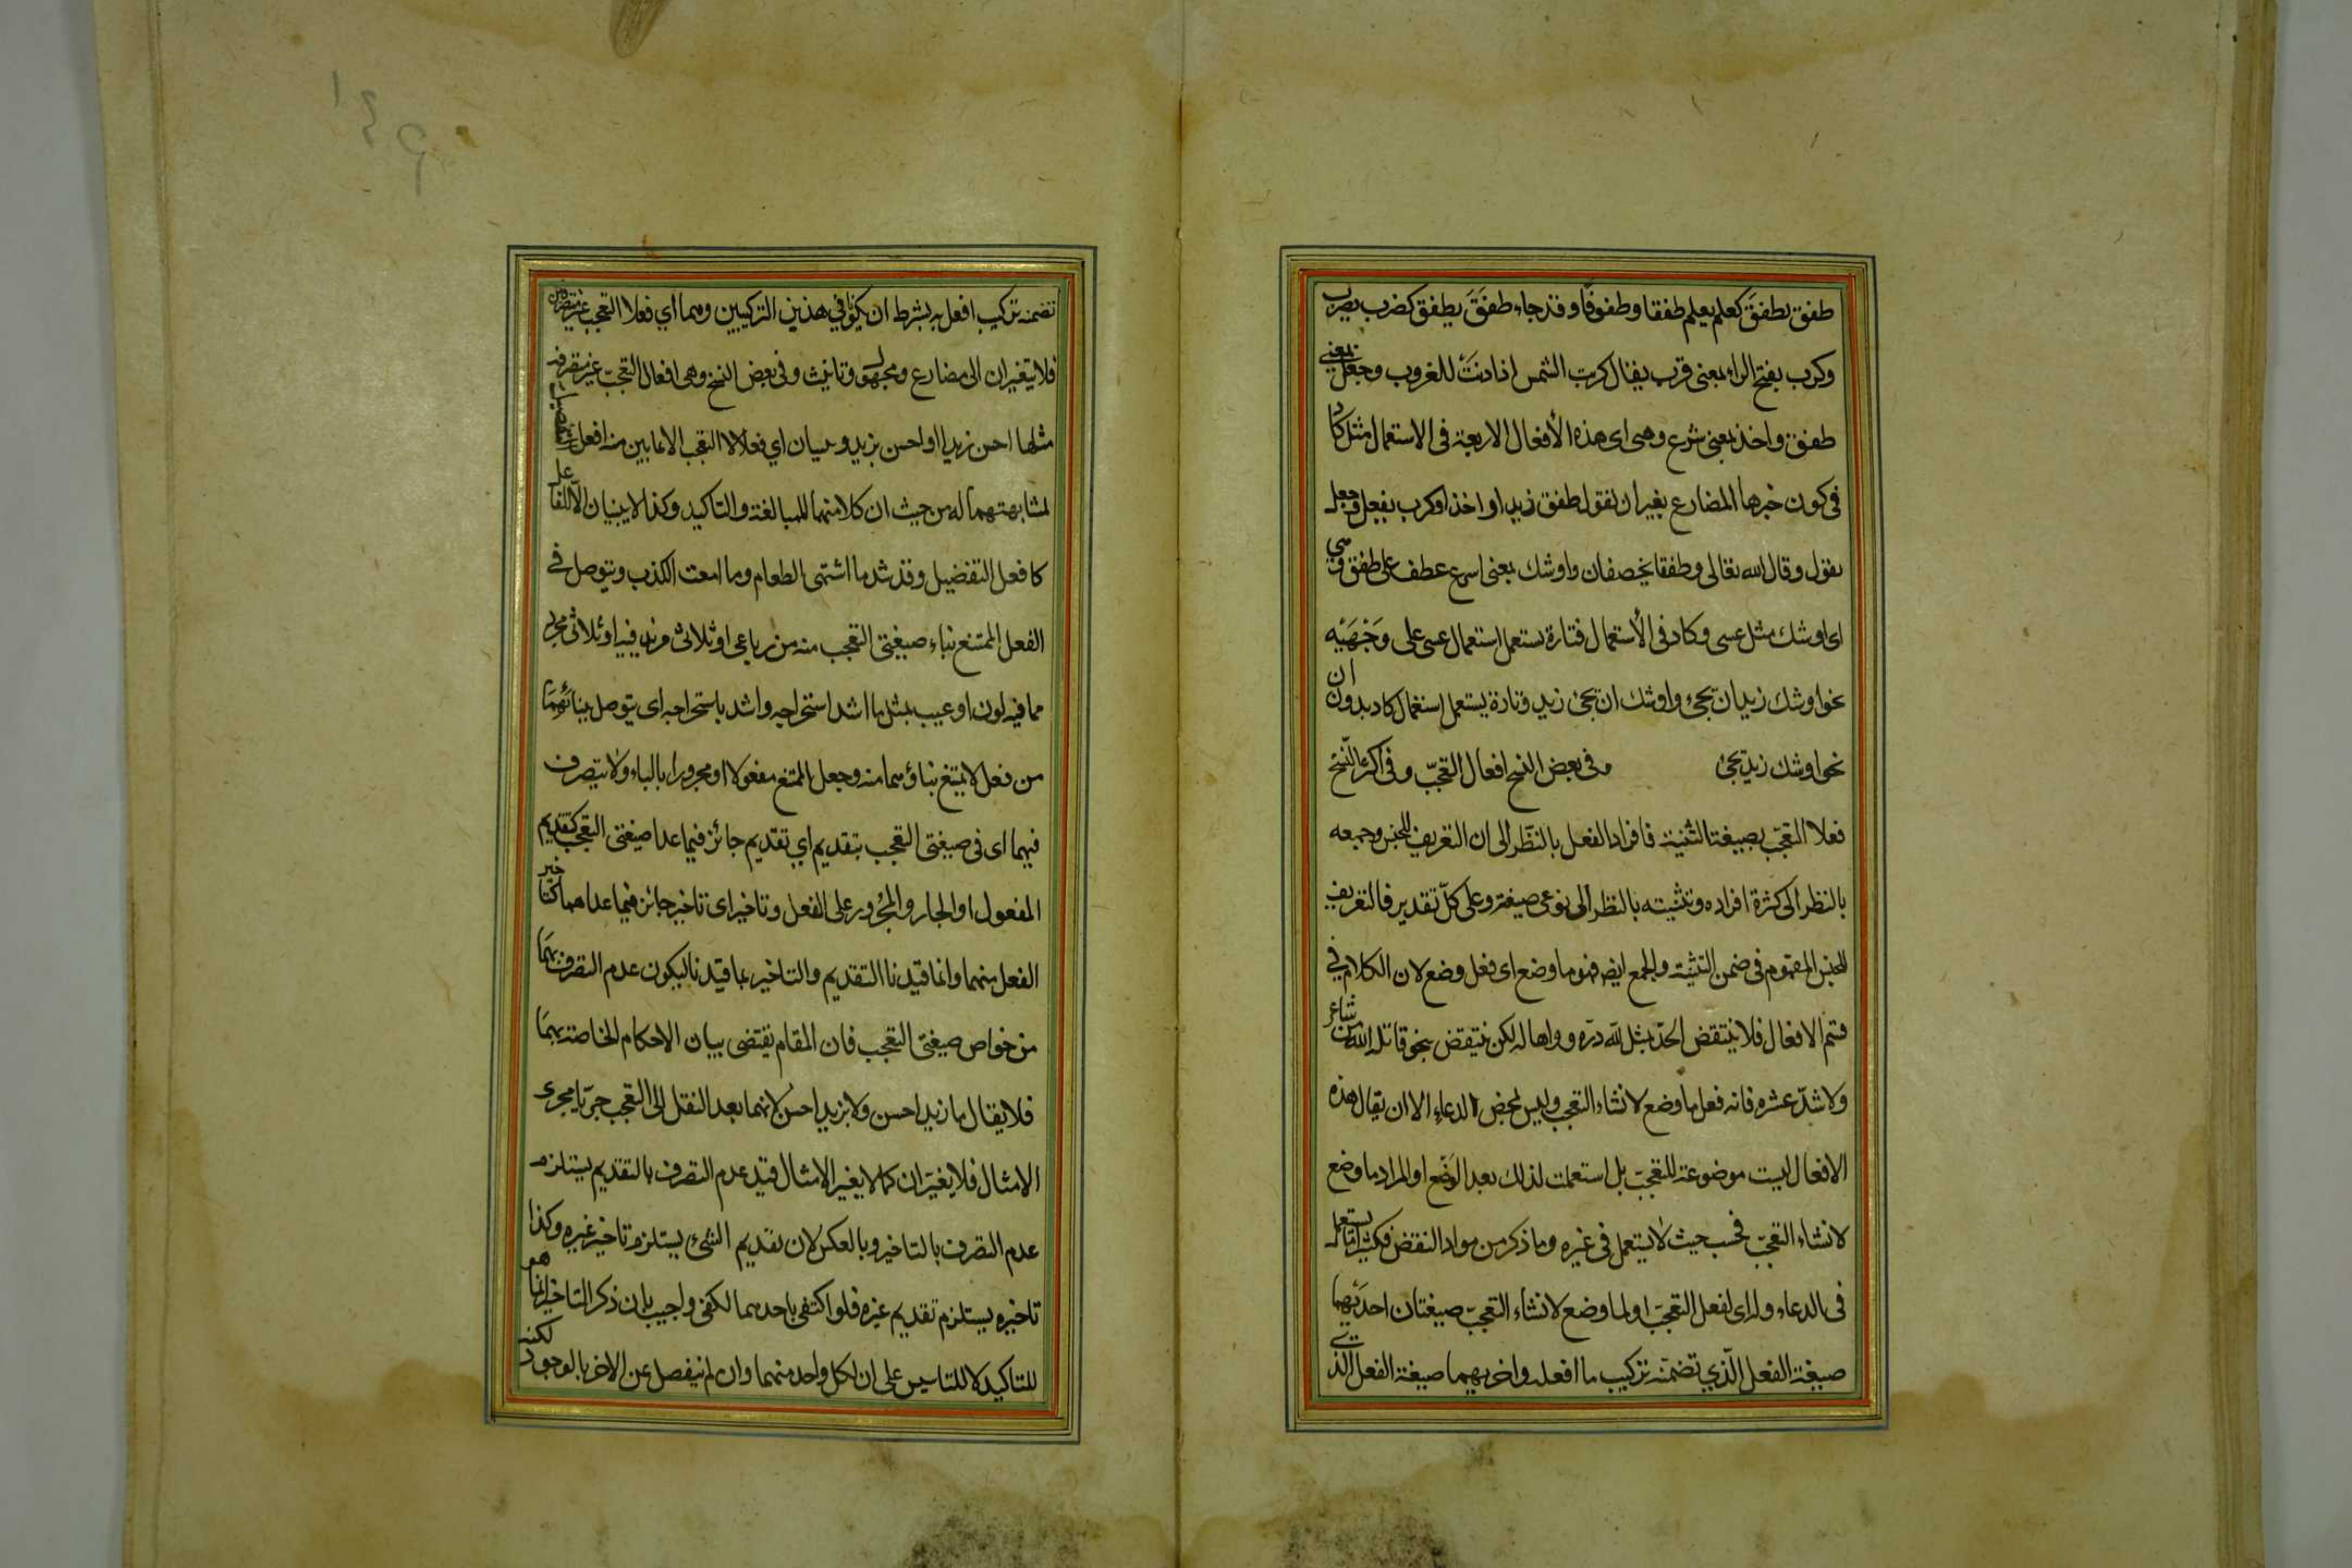 طفق يطفق كعلم يعلم طفقا وطفوقا وقد جاء طفق يطفق كضرب يضرب
وكرب بفتح الراء بمعنى قرب يقال كربت الشمس اذا دنت للغروب وجعل بمعنى
طفق واخذ بمعنى شرع وهى اى هذه الأفعال الاربعة فى الاستعمال مثل كاد
فى كون خبرها المضارع بغير ان تقول طفق زيد او اخذ او كرب يفعل وجعل
يقول وقال الله تعالى وطفقا يخصفان واوشك بمعنى اسرع عطف على طفق وهي
اى اوشك مثل عسى وكاد فى الأستعمال فتارة يستعمل استعمال عسى على وجهيه
نحو اوشك زيد ان يجئ واوشك ان يجئ زيد وتارة يستعمل استعمال كاد بدون ان
نحو اوشك زيد يجئ وفى بعض النسخ افعال التعجّب وفى اكثر النّسخ
فعلا التعجّب بصيغة التّثنية فافراد الفعل بالنّظر الى ان التعريف للجنس وجمعه
بالنظر الى كثرة افراده وتثنيته بالنظر الى نوعى صيغته وعلى كلّ تقدير فالتعريف
للجنس المفهوم فى ضمن التثنية والجمع ايضا فهو ما وضع اى فعل وضع لان الكلام في
قسم الافعال فلا ينتقض الحدّ بمثل لله درّه وواها له لكن ينتقض بنحو قاتله الله من شاعر
ولا شلّ عشره فانه فعل ما وضع لانشاء التعجب وليس لمحض الدعاء الا ان يقال هذه
الافعال ليست موضوعة للتعجّب بل استعملت لذلك بعد الوضع او المراد ما وضع
لانشاء التعجّب فحسب حيث لا يستعمل فى غيره وما ذكر من مواد النقض فكثيرا ما يستعمل
فى الدعاء وله اى لفعل التعجّب او لما وضع لانشاء التعجّب صيغتان احديهما
صيغة الفعل الّذي تضمّنه تركيب ما افعله واخريهما صيغة الفعل الذي
تضمنه تركيب افعل به بشرط ان يكونا في هذين التركيبين وهما اي فعلا التعجب غير متصرفين
فلا يتغيران الى مضارع ومجهول وتانيث وفى بعض النسخ وهى افعال التعجّب غير متصرفة
مثلها احسن زيدا واحسن بزيد ولا يبنيان اي فعلا التعجب الا مما يبنى منه افعل التفضيل
لمشابهتهما له من حيث ان كلا منهما للمبالغة والتاكيد وكذا لا يبنيان الا للفاعل
كافعل التفضيل وقد شذ ما اشتهى الطعام وما امقت الكذب ويتوصل في
الفعل الممتنع بناء صيغتى التعجب منه من رباعى او ثلاثى مزيد فيه او ثلاثى مجرد
مما فيه لون او عيب بمثل ما اشد استخراجه واشدد باستخراجه اى يتوصل ببنائهما
من فعل لا يمتنع بناؤهما منه وجعل الممتنع مفعولا او مجرورا بالباء ولا يتصرف
فيهما اى فى صيغتى التعجب بتقديم اي تقديم جائز فيما عدا صيغتى التعجب كتقديم
المفعول او الجار والمجرور على الفعل وتاخير اى تاخير جائز فيما عداهما كتاخير
الفعل منهما وانما قيدنا التقديم والتاخير بما قيدنا ليكون عدم التصرف بهما
من خواص صيغتى التعجب فان المقام يقتضى بيان الاحكام الخاصة بهما
فلا يقال ما زيد احسن ولا بزيد احسن لانهما بعد النقل الى التعجب جريا مجرى
الامثال فلا يغيّران كما لا يغير الامثال قيد عدم التصرف بالتقديم يستلزم
عدم التصرف بالتاخير وبالعكس لان تقديم الشئ يستلزم تاخير غيره وكذا
تاخيره يستلزم تقديم غيره فلو اكتفى باحدهما لكفى واجيب بان ذكر التاخير انما هو
للتاكيد لا للتاسيس على ان لكل واحد منهما وان لم ينفصل عن الاخر بالوجود لكنه